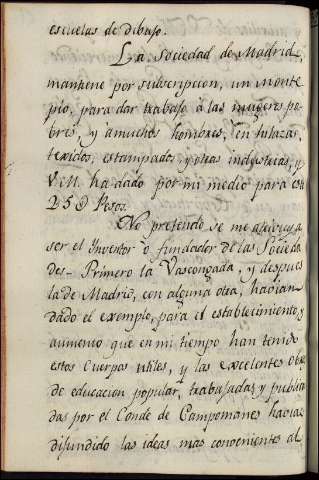 escuelas de dibujo.
La Sociedad de Madrid,
mantiene por subscripcion, un monte
pio, para dar trabajo à las mugeres po-
bres, y amuchos hombres, en hilazas,
texidos, estampado, y otras industrias, y
V.M. ha dado por mi medio para esto
25 D Pesos.
No pretendo se me atribuya
ser el Inventor ò fundador de las Socieda-
des. Primero la Vascongada, y despues
la de Madrid, con alguna otra, havian
dado el exemplo, para el establecimiento, y
aumento que en mi tiempo han tenido
estos Cuerpos utiles, y las excelentes obras
de educacion popular, trabajadas, y publica-
das por el Conde de Campomanes havian
difundido las ideas mas convenientes al